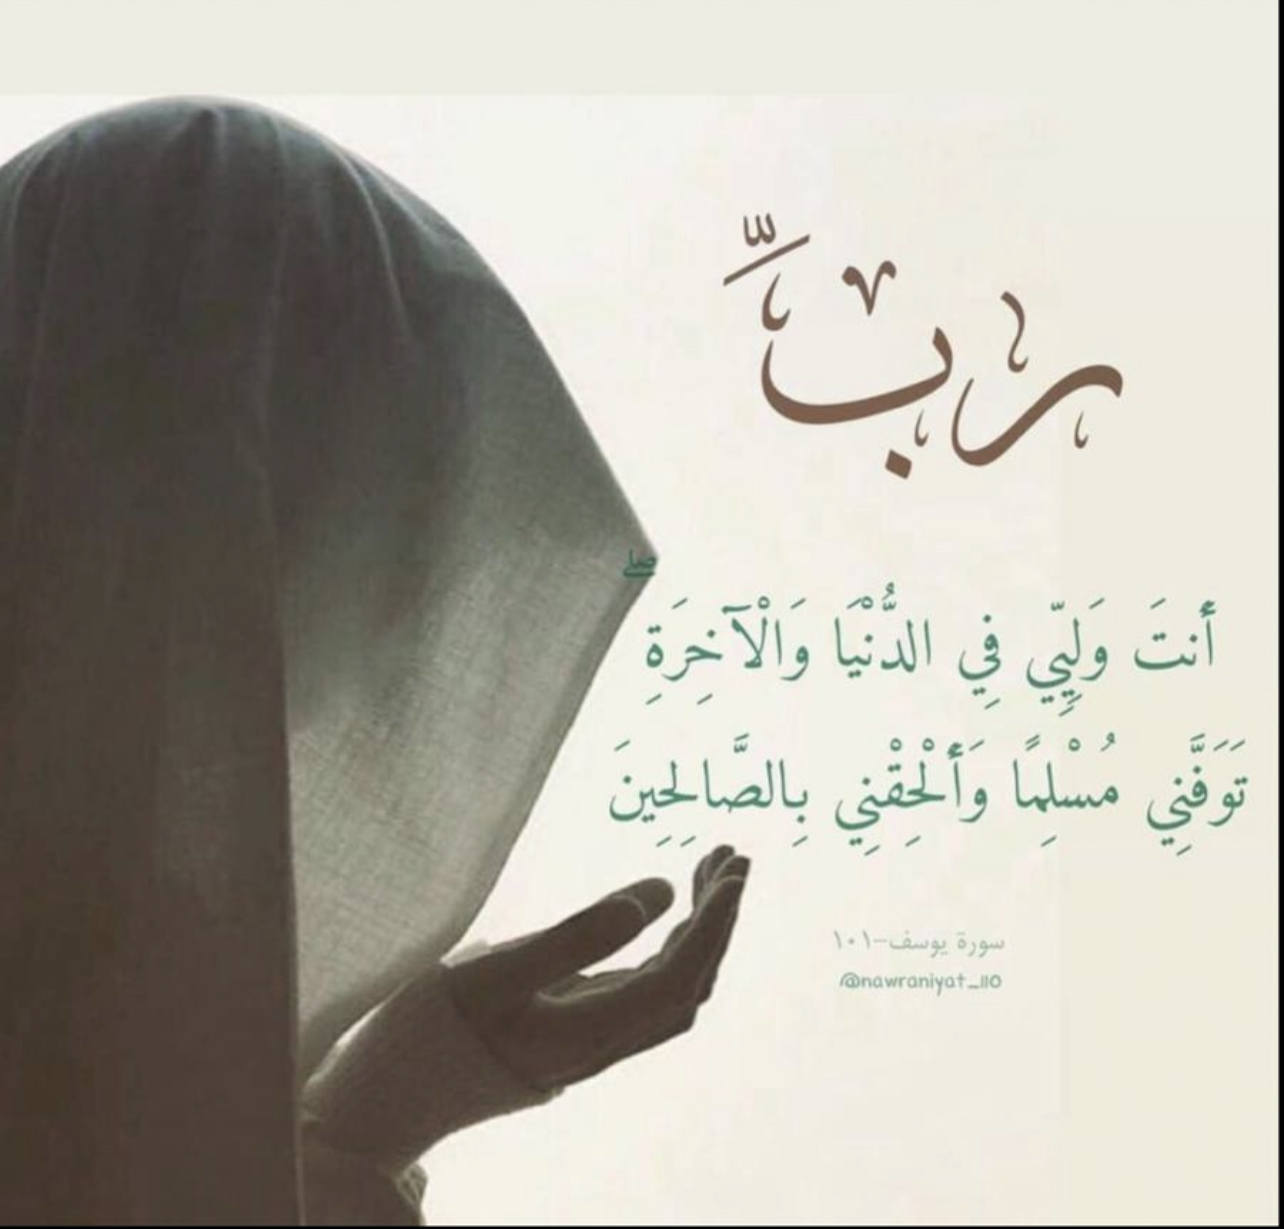 رَبِّ
أَنتَ وَلِيِّي فِي الدُّنْيَا وَالْآخِرَةِ ۖ
تَوَفَّنِي مُسْلِمًا وَأَلْحِقْنِي بِالصَّالِحِينَ
سورة يوسف-١٠١
@nawraniyat_110